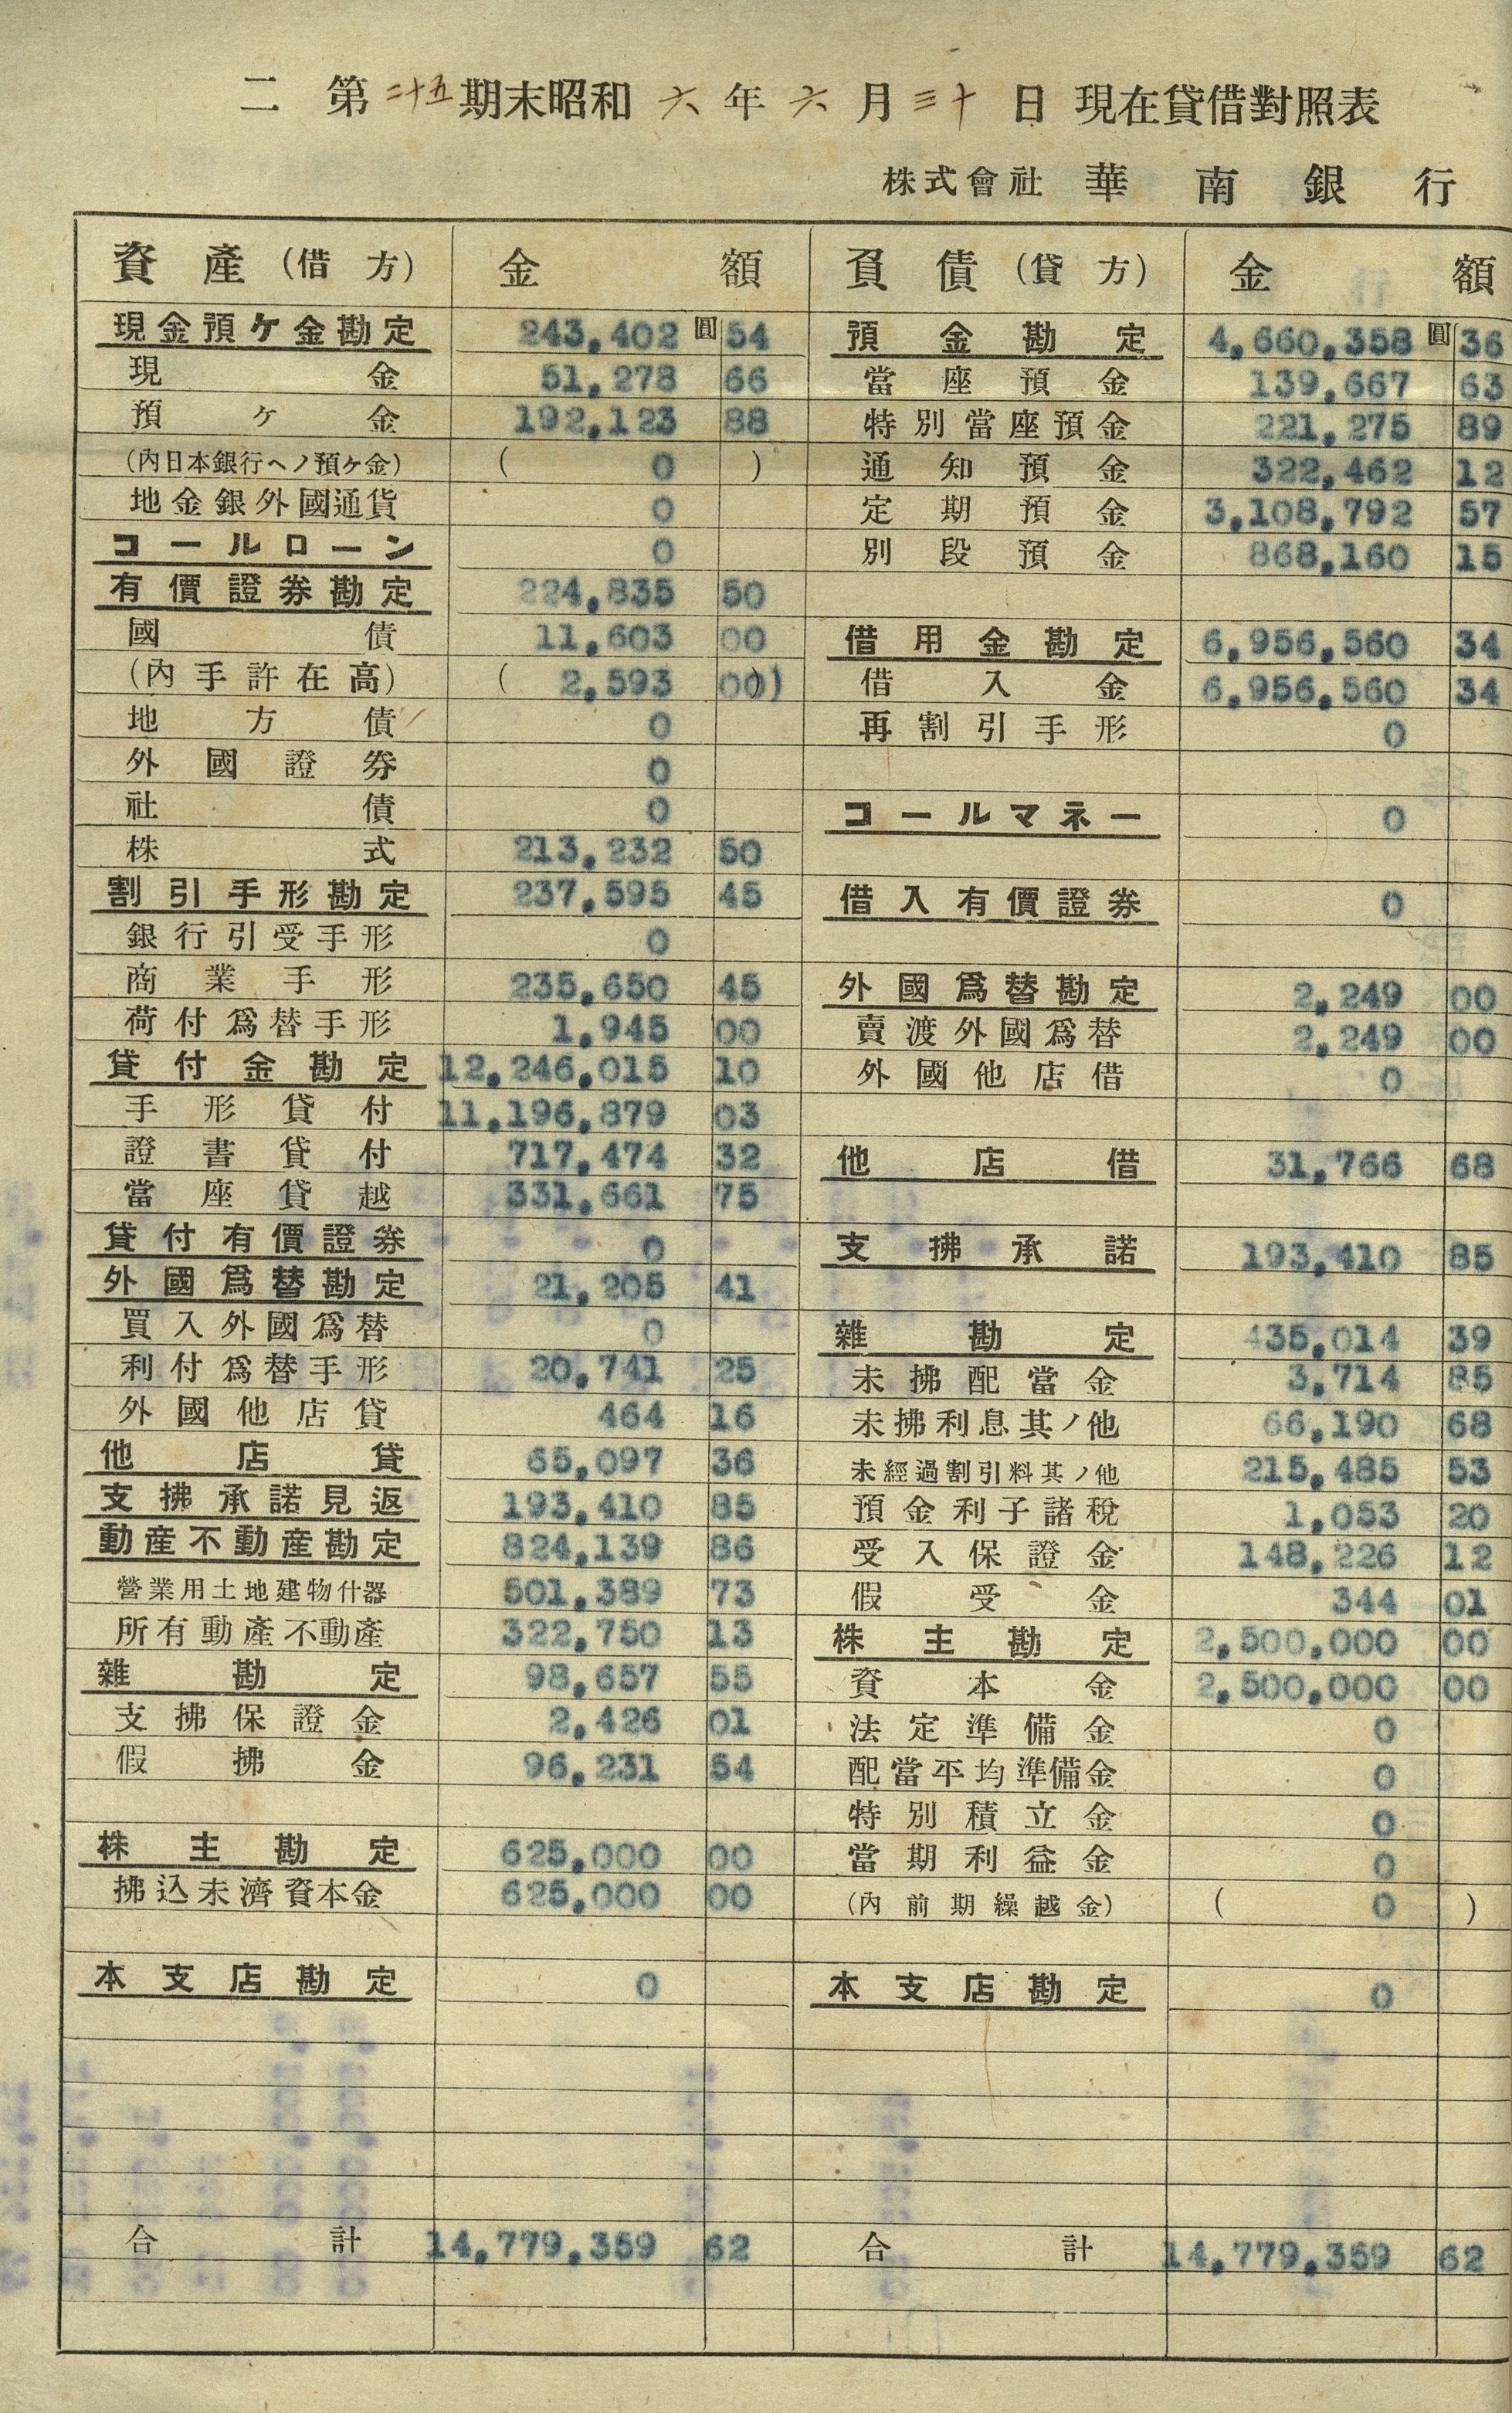 二 第二十五期末昭和六年六月三十日 現在貸借對照表
株式會社 華南銀行
資產(借方) 金額 負債(貸方) 金額
現金預ケ金勘定 243,402圓54 預金勘定 4,660,358圓36
現金 51,278 66 當座預金 139,667 63
預ケ金 192,123 88 特別當座預金 221,275 89
(內日本銀行ヘノ預ケ金) ( 0 ) 通知預金 322,462 12
地金銀外國通貨 0 定期預金 3,108,792 57
コールローン 0 別段預金 868,160 15
有價證券勘定 224,835 50
國債 11,603 00 借用金勘定 6,956,560 34
(內手許在高) ( 2,593 00) 借入金 6,956,560 34
地方債 0 再割引手形 0
外國證券 0
社債 0 コールマネー 0
株式 213,232 50
割引手形勘定 237,595 45 借入有價證券 0
銀行引受手形 0
商業手形 235,650 45 外國爲替勘定 2,249 00
荷付爲替手形 1,945 00 賣渡外國爲替 2,249 00
貸付金勘定 12,246,015 10 外國他店借 0
手形貸付 11,196,879 03
證書貸付 717,474 32 他店借 31,766 68
當座貸越 331,661 75
貸付有價證券 0 支拂承諾 193,410 85
外國爲替勘定 21,205 41
買入外國爲替 0 雜勘定 435,014 39
利付爲替手形 20,741 25 未拂配當金 3,714 85
外國他店貸 464 16 未拂利息其ノ他 66,190 68
他店貸 65,097 36 未經過割引料其ノ他 215,485 53
支拂承諾見返 193,410 85 預金利子諸稅 1,053 20
動產不動產勘定 824,139 86 受入保證金 148,226 12
營業用土地建物什器 501,389 73 假受金 344 01
所有動產不動產 322,750 13 株主勘定 2,500,000 00
雜勘定 98,657 55 資本金 2,500,000 00
支拂保證金 2,426 01 法定準備金 0
假拂金 96,231 54 配當平均準備金 0
特別積立金 0
株主勘定 625,000 00 當期利益金 0
拂込未濟資本金 625,000 00 (內前期繰越金) ( 0 )
本支店勘定 0 本支店勘定 0
合計 14,779,359 62 合計 14,779,359 62